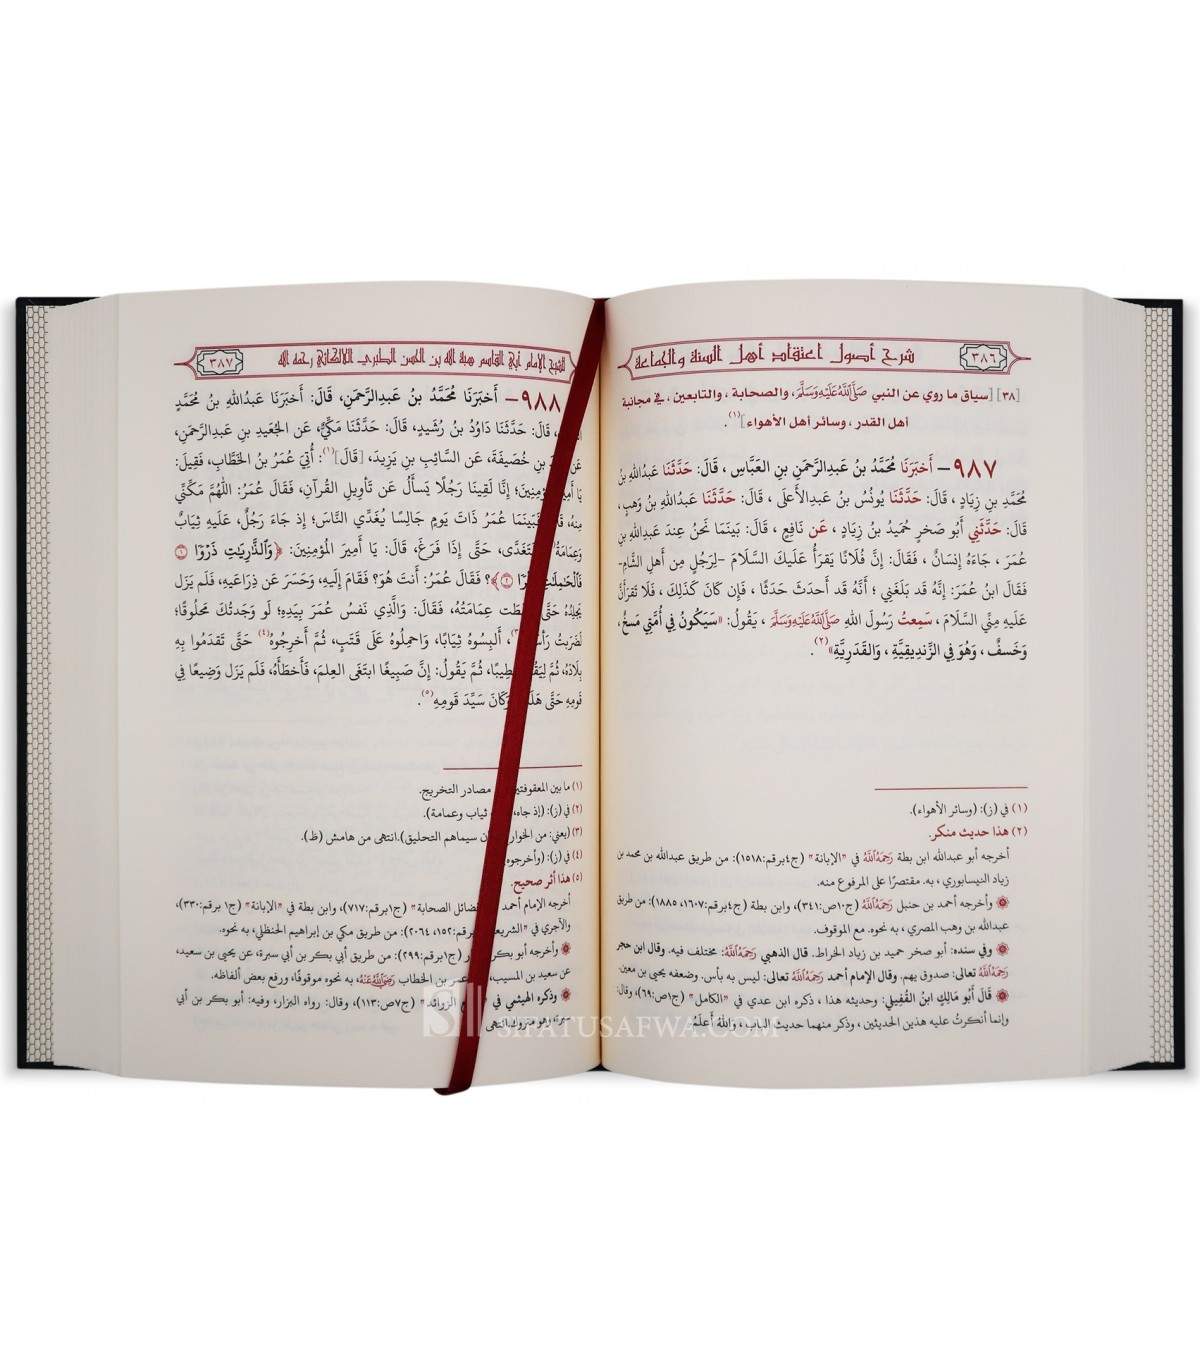 شرح أصول اعتقاد أهل السنة والجماعة
٣٨٦
[٣٨] [سياق ما روي عن النبي ﷺ، والصحابة، والتابعين، في مجانبة
أهل القدر، وسائر أهل الأهواء](١).
٩٨٧ – أَخبَرَنَا مُحَمَّدُ بنُ عَبدِالرَّحمَنِ بنِ العَبَّاسِ، قَالَ: حَدَّثَنَا عَبدُاللهِ بنُ
مُحَمَّدِ بنِ زِيَادٍ، قَالَ: حَدَّثَنَا يُونُسُ بنُ عَبدِالأَعلَى، قَالَ: حَدَّثَنَا عَبدُاللهِ بنُ وَهبٍ،
قَالَ: حَدَّثَنِي أَبُو صَخرٍ حُمَيدُ بنُ زِيَادٍ، عَن نَافِعٍ، قَالَ: بَينَمَا نَحنُ عِندَ عَبدِاللهِ بنِ
عُمَرَ، جَاءَهُ إِنسَانٌ، فَقَالَ: إِنَّ فُلَانًا يَقرَأُ عَلَيكَ السَّلَامَ –لِرَجُلٍ مِن أَهلِ الشَّامِ–
فَقَالَ ابنُ عُمَرَ: إِنَّهُ قَد بَلَغَنِي؛ أَنَّهُ قَد أَحدَثَ حَدَثًا، فَإِن كَانَ كَذَلِكَ، فَلَا تَقرَأَنَّ
عَلَيهِ مِنِّي السَّلَامَ، سَمِعتُ رَسُولَ اللهِ ﷺ، يَقُولُ: «سَيَكُونُ فِي أُمَّتِي مَسخٌ،
وَخَسفٌ، وَهُوَ فِي الزِّندِيقِيَّةِ، وَالقَدَرِيَّةِ»(٢).
(١) في (ز): (وسائر الأهواء).
(٢) هذا حديث منكر.
أخرجه أبو عبدالله ابن بطة رَحِمَهُ اللَّهُ في "الإبانة" (ج٤برقم:١٥١٨): من طريق عبدالله بن محمد بن
زياد النيسابوري، به. مقتصرًا على المرفوع منه.
وأخرجه أحمد بن حنبل رَحِمَهُ اللَّهُ (ج١٠ص:٣٤١)، وابن بطة (ج٤برقم:١٦٠٧، ١٨٨٥): من طريق
عبدالله بن وهب المصري، به. نحوه. مع الموقوف.
وفي سنده: أبو صخر حميد بن زياد الخراط. قال الذهبي رَحِمَهُ اللَّهُ: مختلف فيه. وقال ابن حجر
رَحِمَهُ اللَّهُ تعالى: صدوق يهم. وقال الإمام أحمد رَحِمَهُ اللَّهُ تعالى: ليس به بأس. وضعفه يحيى بن معين.
قَالَ أَبُو مَالِكٍ ابنُ القُفِيلِي: وحديثه هذا، ذكره ابن عدي في "الكامل" (ج١ص:٦٩)، وقال:
وإنما أنكرتُ عليه هذين الحديثين، وذكر منهما حديث الباب، وَاللهُ أَعلَمُ.
للشيخ الإمام أبي القاسم هبة الله بن الحسن الطبري اللالكائي رحمه الله
٣٨٧
٩٨٨ – أَخبَرَنَا مُحَمَّدُ بنُ عَبدِالرَّحمَنِ، قَالَ: أَخبَرَنَا عَبدُاللهِ بنُ مُحَمَّدٍ
قَالَ: حَدَّثَنَا دَاوُدُ بنُ رُشَيدٍ، قَالَ: حَدَّثَنَا مَكِّيٌّ، عَنِ الجُعَيدِ بنِ عَبدِالرَّحمَنِ،
عَن بنِ خُصَيفَةَ، عَنِ السَّائِبِ بنِ يَزِيدَ، [قَالَ](١): أُتِيَ عُمَرُ بنُ الخَطَّابِ، فَقِيلَ:
يَا أَمِيرَ المُؤمِنِينَ؛ إِنَّا لَقِينَا رَجُلًا يَسأَلُ عَن تَأوِيلِ القُرآنِ، فَقَالَ عُمَرُ: اللَّهُمَّ مَكِّنِّي
مِنهُ، فَبَينَمَا عُمَرُ ذَاتَ يَومٍ جَالِسًا يُغَدِّي النَّاسَ؛ إِذ جَاءَ رَجُلٌ، عَلَيهِ ثِيَابٌ
وَعِمَامَةٌ فَتَغَدَّى، حَتَّى إِذَا فَرَغَ، قَالَ: يَا أَمِيرَ المُؤمِنِينَ: ﴿وَٱلذَّٰرِيَٰتِ ذَرۡوٗا ١
فَٱلۡحَٰمِلَٰتِ وِقۡرٗا ٢﴾؟ فَقَالَ عُمَرُ: أَنتَ هُوَ؟ فَقَامَ إِلَيهِ، وَحَسَرَ عَن ذِرَاعَيهِ، فَلَم يَزَل
يَجلِدُهُ حَتَّى سَقَطَت عِمَامَتُهُ، فَقَالَ: وَالَّذِي نَفسُ عُمَرَ بِيَدِهِ؛ لَو وَجَدتُكَ مَحلُوقًا؛
لَضَرَبتُ رَأسَكَ(٣)، أَلبِسُوهُ ثِيَابًا، وَاحمِلُوهُ عَلَى قَتَبٍ، ثُمَّ أَخرِجُوهُ(٤) حَتَّى تَقدَمُوا بِهِ
بِلَادَهُ، ثُمَّ لِيَقُم خَطِيبًا، ثُمَّ يَقُولُ: إِنَّ صَبِيغًا ابتَغَى العِلمَ، فَأَخطَأَهُ، فَلَم يَزَل وَضِيعًا فِي
قَومِهِ حَتَّى هَلَكَ، وَكَانَ سَيِّدَ قَومِهِ(٥).
(١) ما بين المعقوفتين مصادر التخريج.
(٢) في (ز): (إذ جاء، ثياب وعمامة).
(٣) (يعني: من الخوارج سيماهم التحليق). انتهى من هامش (ظ).
(٤) في (ز): (وأخرجوه
(٥) هذا أثر صحيح.
أخرجه الإمام أحمد فضائل الصحابة" (ج١برقم:٧١٧)، وابن بطة في "الإبانة" (ج١ برقم:٣٣٠)،
والآجري في "الشريعة برقم:١٥٢، ٢٠٦٤): من طريق مكي بن إبراهيم الحنظلي، به نحوه.
وأخرجه أبو بكر (ج١برقم:٢٩٩): من طريق أبي بكر بن أبي سبرة، عن يحيى بن سعيد،
عن سعيد بن المسيب، عمر بن الخطاب رَضِيَ اللَّهُ عَنْهُ، به نحوه موقوفًا، ورفع بعض ألفاظه.
وذكره الهيثمي في الزوائد" (ج٧ص:١١٣)، وقال: رواه البزار، وفيه: أبو بكر بن أبي
سبرة؛ وهو متروك. انتهى
SIFATUSAFWA.COM